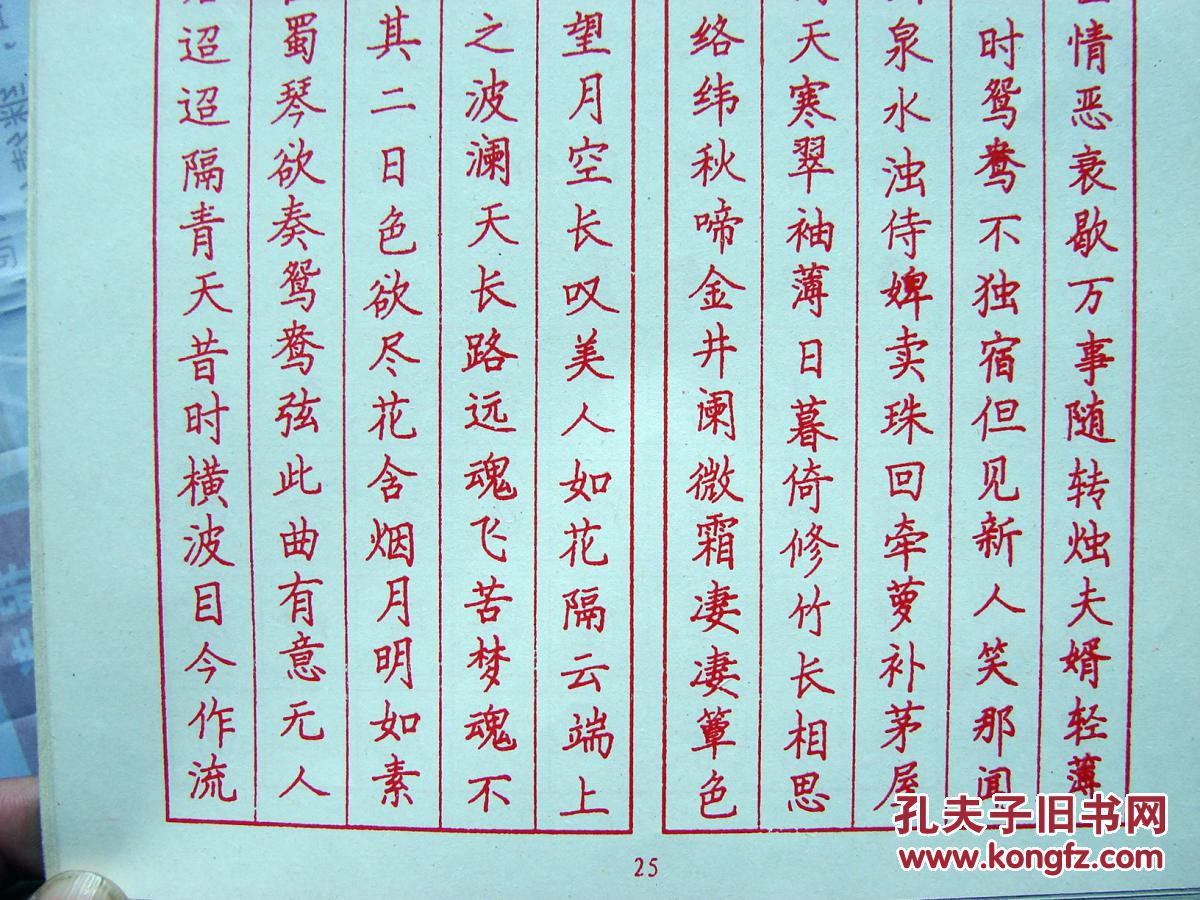 情恶衰歇万事随转烛夫婿轻薄
时鸳鸯不独宿但见新人笑那闻
泉水浊侍婢卖珠回牵萝补茅屋
天寒翠袖薄日暮倚修竹长相思
络纬秋啼金井阑微霜凄凄簟色
望月空长叹美人如花隔云端上
之波澜天长路远魂飞苦梦魂不
其二日色欲尽花含烟月明如素
蜀琴欲奏鸳鸯弦此曲有意无人
迢迢隔青天昔时横波目今作流
25
孔夫子旧书网
www.kongfz.com